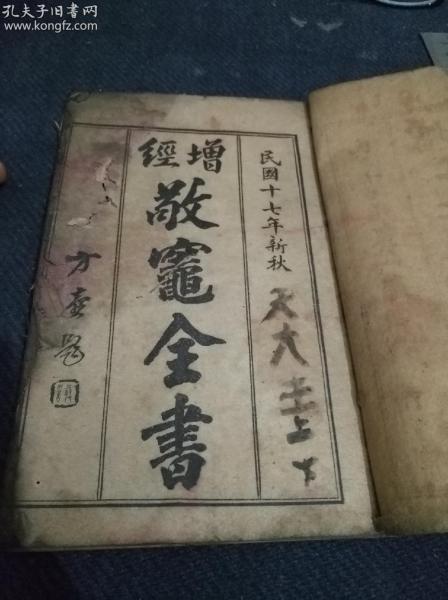 孔夫子旧書网
www.kongfz.com
民國十七年新秋
增經
敬竈全書